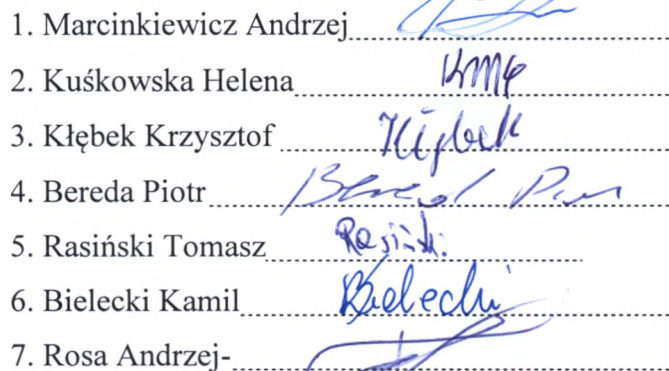 1. Marcinkiewicz Andrzej
2. Kuśkowska Helena
3. Kłębek Krzysztof Kłębek
4. Bereda Piotr
5. Rasiński Tomasz Rasiński
6. Bielecki Kamil Bielecki
7. Rosa Andrzej-